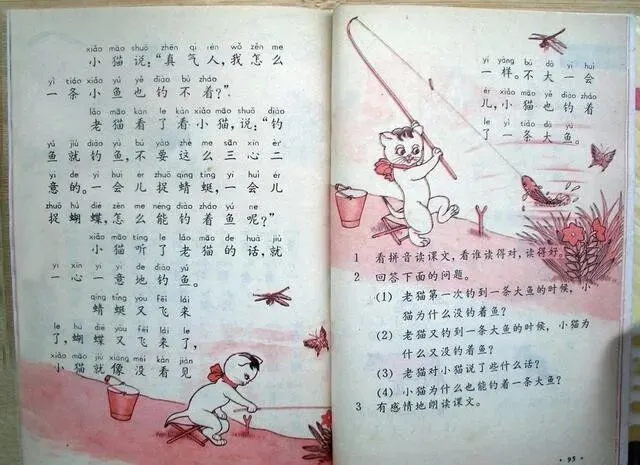 xiǎo māo shuō zhēn qì rén wǒ zěn me
小猫说：“真气人，我怎么
yì tiáo xiǎo yú yě diào bù zháo
一条小鱼也钓不着？”
lǎo māo kàn le kàn xiǎo māo shuō diào
老猫看了看小猫，说：“钓
yú jiù diào yú bú yào zhè me sān xīn èr
鱼就钓鱼，不要这么三心二
yì de yí huì ér zhuō qīng tíng yí huì ér
意的。一会儿捉蜻蜓，一会儿
zhuō hú dié zěn me néng diào zháo yú ne
捉蝴蝶，怎么能钓着鱼呢？”
xiǎo māo tīng le lǎo māo de huà jiù
小猫听了老猫的话，就
yì xīn yí yì de diào yú
一心一意地钓鱼。
qīng tíng yòu fēi lái
蜻蜓又飞来
le hú dié yòu fēi lái le
了，蝴蝶又飞来了，
xiǎo māo jiù xiàng méi kàn jiàn
小猫就像没看见
yí yàng bú dà yí huì
一样。不大一会
ér xiǎo māo yě diào zháo
儿，小猫也钓着
le yì tiáo dà yú
了一条大鱼。
1 看拼音读课文，看谁读得对，读得好。
2 回答下面的问题。
(1) 老猫第一次钓到一条大鱼的时候，小
猫为什么没钓着鱼？
(2) 老猫又钓到一条大鱼的时候，小猫为
什么又没钓着鱼？
(3) 老猫对小猫说了些什么话？
(4) 小猫为什么也能钓着一条大鱼？
3 有感情地朗读课文。
· 95 ·